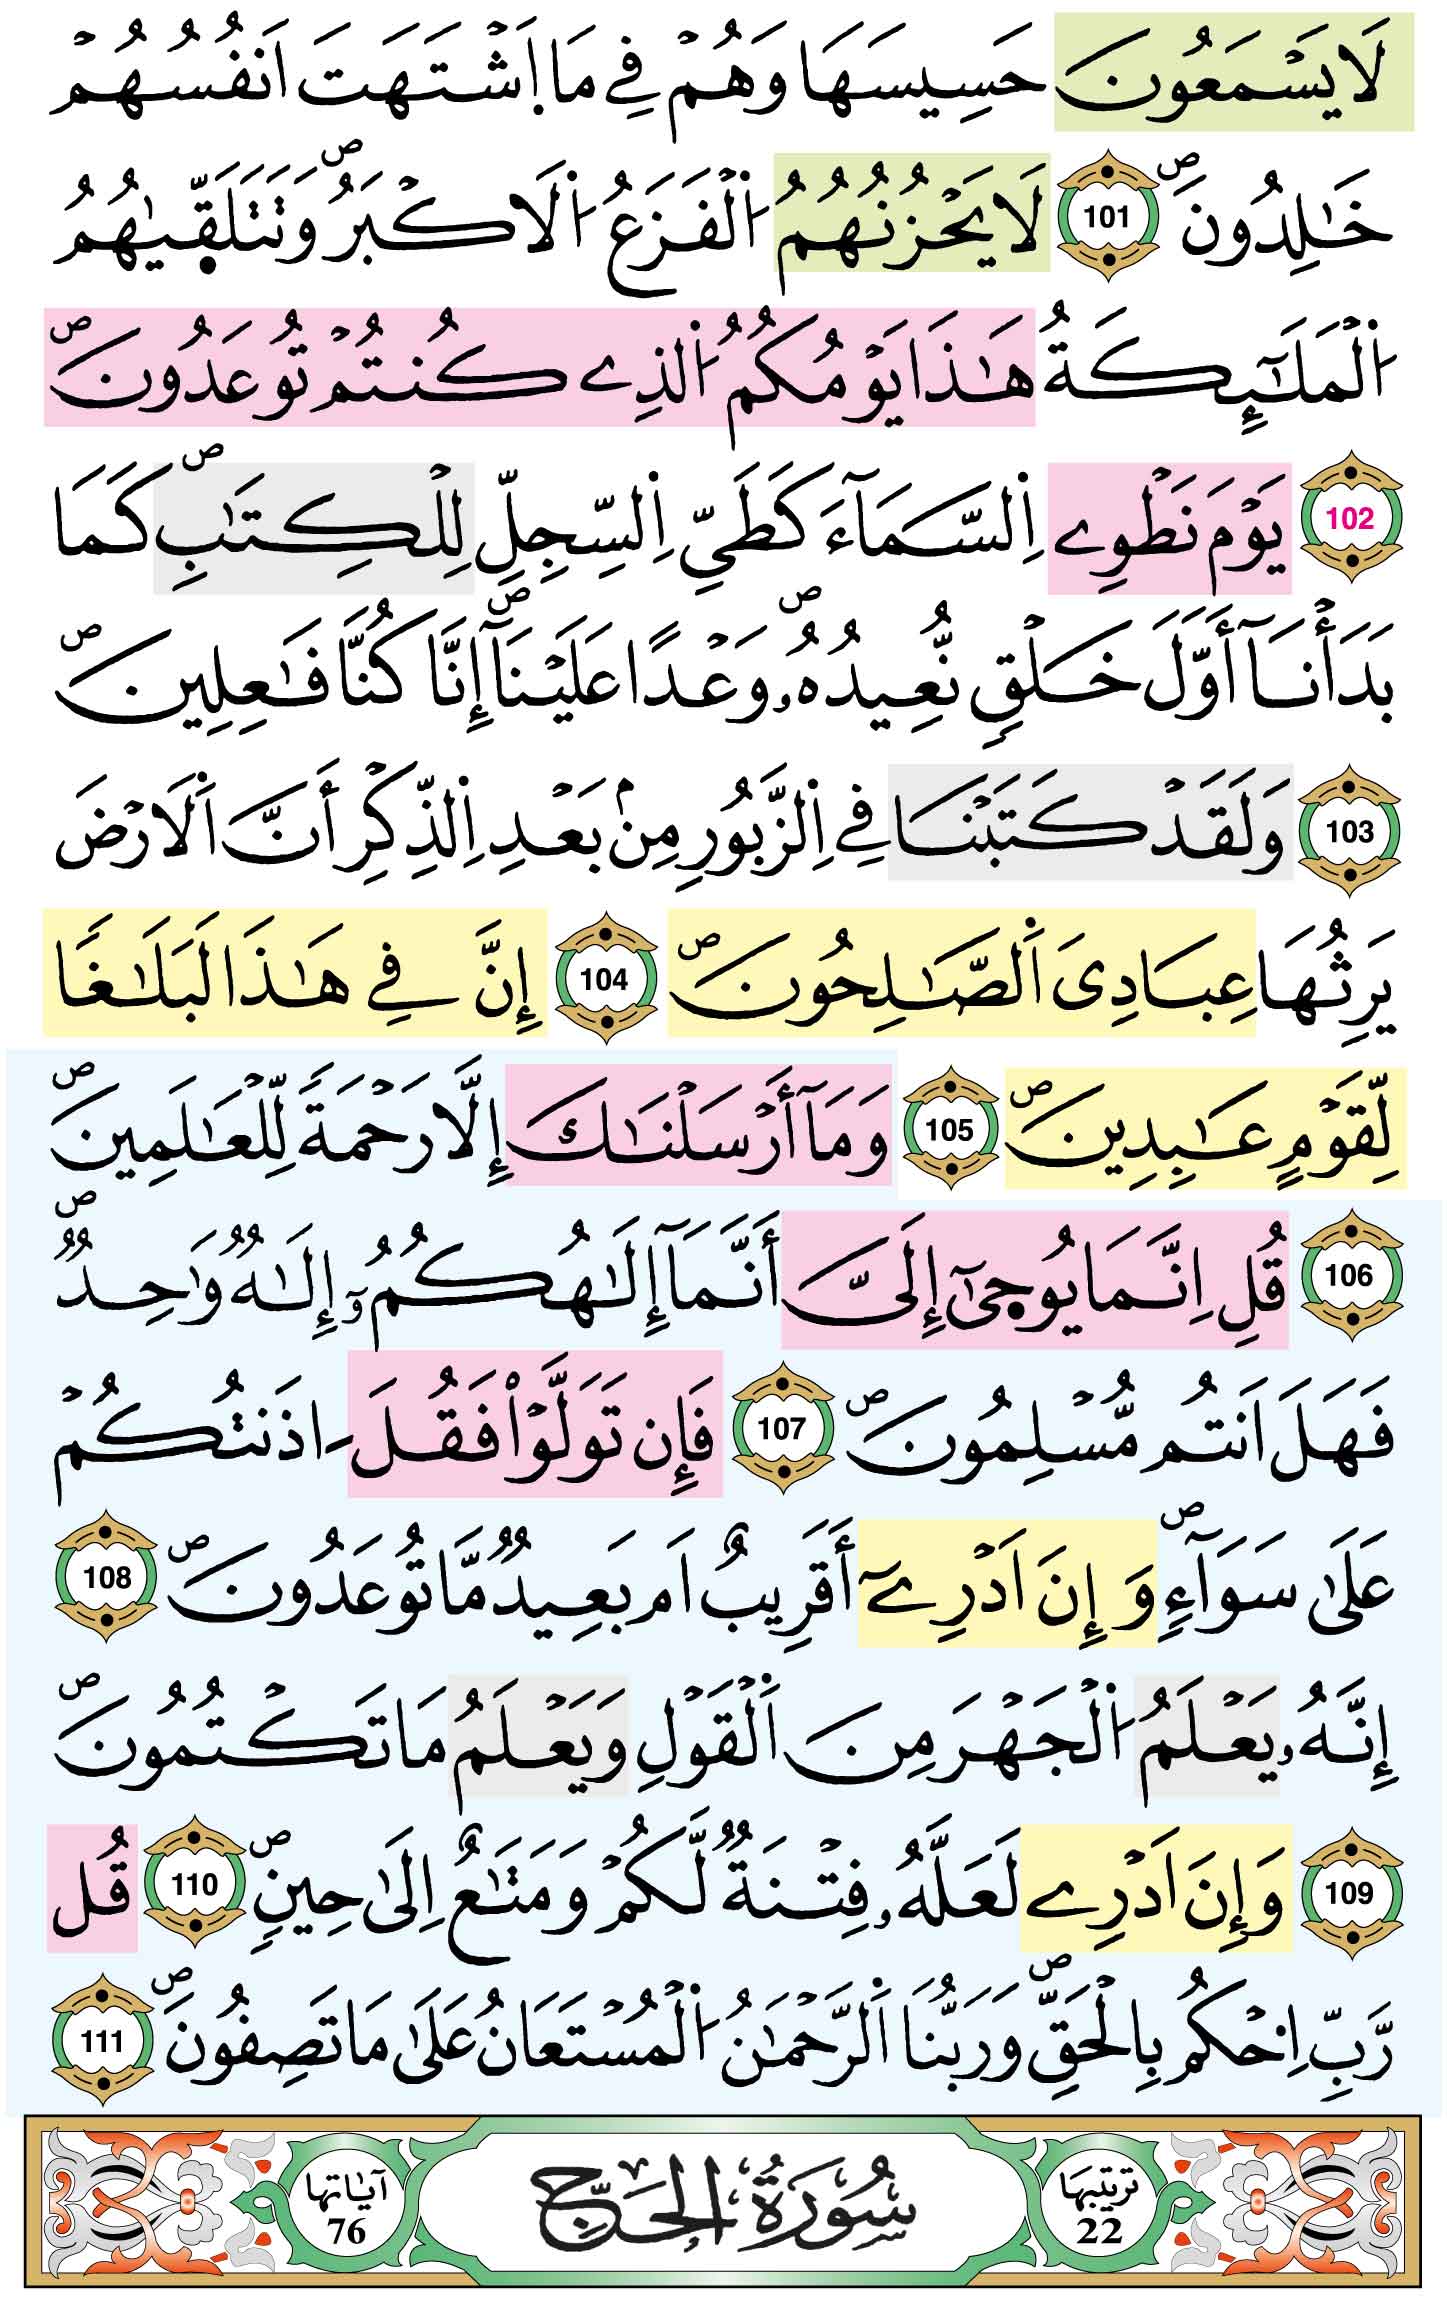 لَا يَسْمَعُونَ حَسِيسَهَا وَهُمْ فِي مَا اَشْتَهَتَ اَنفُسُهُمْ
خَٰلِدُونَۖ 101 لَا يَحْزُنُهُمُ اُ۬لْفَزَعُ اُ۬لَاكْبَرُۖ وَتَتَلَقّ۪يٰهُمُ
اُ۬لْمَلَٰٓئِكَةُ هَٰذَا يَوْمُكُمُ اُ۬لذِے كُنتُمْ تُوعَدُونَۖ
102 يَوْمَ نَطْوِے اِ۬لسَّمَآءَ كَطَيِّ اِ۬لسِّجِلِّ لِلْكِتَٰبِۖ كَمَا
بَدَأْنَآ أَوَّلَ خَلْقٖ نُّعِيدُهُۥۖ وَعْداً عَلَيْنَآۖ إِنَّا كُنَّا فَٰعِلِينَۖ
103 وَلَقَدْ كَتَبْنَا فِے اِ۬لزَّبُورِ مِنۢ بَعْدِ اِ۬لذِّكْرِ أَنَّ اَ۬لَارْضَ
يَرِثُهَا عِبَادِيَ اَ۬لصَّٰلِحُونَۖ 104 إِنَّ فِے هَٰذَا لَبَلَٰغاً
لِّقَوْمٍ عَٰبِدِينَۖ 105 وَمَآ أَرْسَلْنَٰكَ إِلَّا رَحْمَةً لِّلْعَٰلَمِينَۖ
106 قُلِ اِنَّمَا يُوح۪يٰٓ إِلَيَّ أَنَّمَآ إِلَٰهُكُمُۥٓ إِلَٰهٌ وَٰحِدٌۖ
فَهَلَ اَنتُم مُّسْلِمُونَۖ 107 فَإِن تَوَلَّوْاْ فَقُلَ اٰذَنتُكُمْ
عَلَىٰ سَوَآءٍۖ وَإِنَ اَدْرِےٓ أَقَرِيبٌ اَم بَعِيدٌ مَّا تُوعَدُونَۖ 108
إِنَّهُۥ يَعْلَمُ اُ۬لْجَهْرَ مِنَ اَ۬لْقَوْلِ وَيَعْلَمُ مَا تَكْتُمُونَۖ
109 وَإِنَ اَدْرِے لَعَلَّهُۥ فِتْنَةٌ لَّكُمْ وَمَتَٰعٌ اِلَىٰ حِينٖۖ 110 قُل
رَّبِّ اِحْكُم بِالْحَقِّۖ وَرَبُّنَا اَ۬لرَّحْمَٰنُ اُ۬لْمُسْتَعَانُ عَلَىٰ مَا تَصِفُونَۖ 111
ترتيبها 22 سُورَةُ الحَجِّ آيَاتها 76